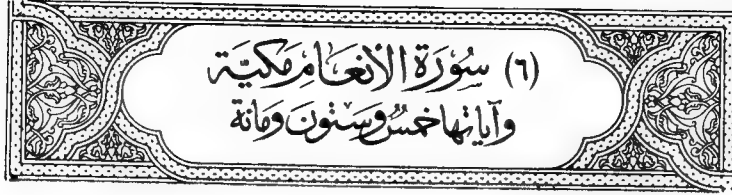 (٦) سُورَة الأنعَامِ مَكيَّة
وَآيَاتهَا خمسٌ وَستونَ وَمائة